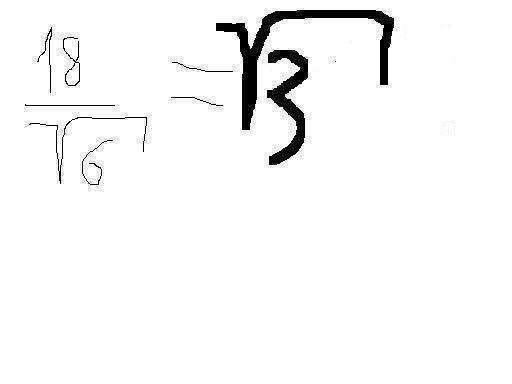 18/√6 = √3